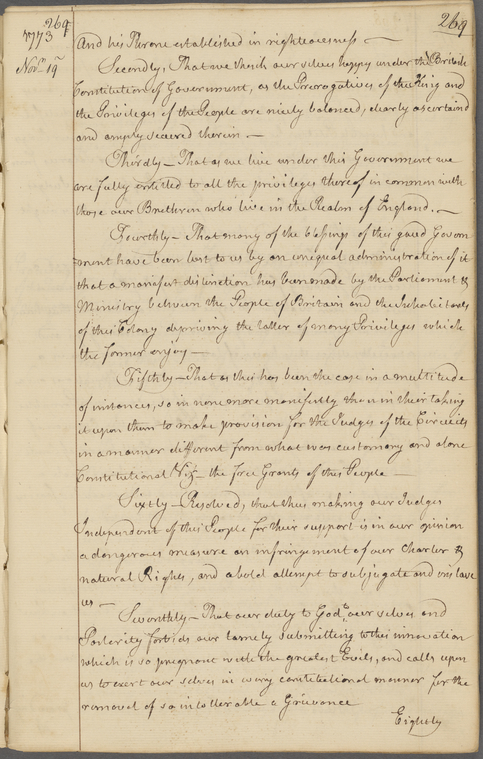 269
269
1773
Nov.r 19
And his Throne established in righteousness —
Secondly, That we think our selves happy under the British
Constitution of Government, as the Prerogatives of the King and
the Privileges of the People are nicely balanced, clearly ascertaind
and amply secured therein —
Thirdly — That as we live under this Government we
are fully entitled to all the privileges thereof in common with
those our Brethren who live in the Realm of England. —
Fourthly — That many of the blessings of this good Govern
ment have been lost to us by an unequal administration of it
that a manifest distinction has been made by the Parliament &
Ministry between the People of Britain and the Inhabitants
of this Colony depriving the latter of many Privileges which
the former enjoy —
Fifthly — That as this has been the case in a multitude
of instances, so in none more manifestly than in their taking
it upon them to make provision for the Judges of the Circuits
in a manner different from what was customary and alone
Constitutional Viz. — the free Grants of the People —
Sixtly — Resolved, that thus making our Judges
Independent of this People for their support is in our opinion
a dangerous measure an infringement of our Charter &
natural Rights, and a bold attempt to subjugate and inslave
us —
Sventhly — That our duty to God, our selves and
Posterity forbids our tamely submitting to this innovation
which is so pregnant with the greatest Evils, and calls upon
us to exert our selves in every constitutional manner for the
removal of so intollerable a Grievance
Eightly